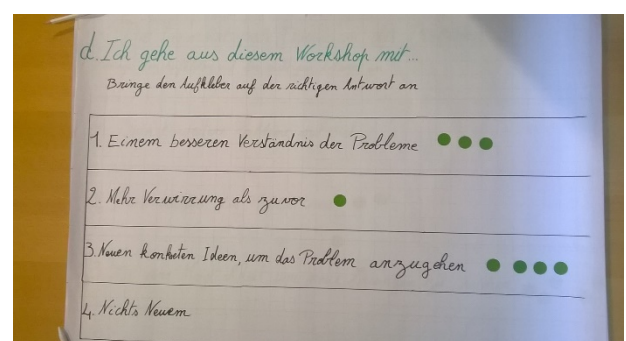 d. Ich gehe aus diesem Workshop mit...
Bringe den Aufkleber auf der richtigen Antwort an
1. Einem besseren Verständnis der Probleme
2. Mehr Verwirrung als zuvor
3. Neuen konkreten Ideen, um das Problem anzugehen
4. Nichts Neuem